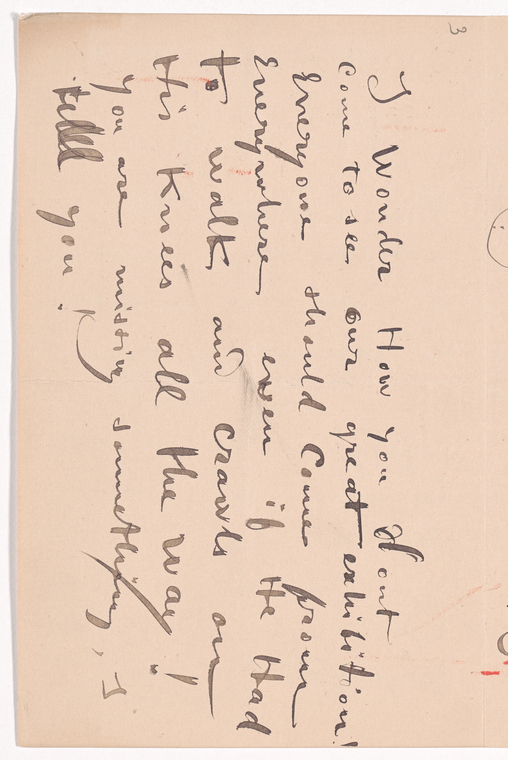 3
I Wonder How you Dont
Come to see our great exhibition!
Everyone should Come from
Everywhere even if He Had
to walk and crawls on
His Knees all the way!
You are missing something, I
tell you!